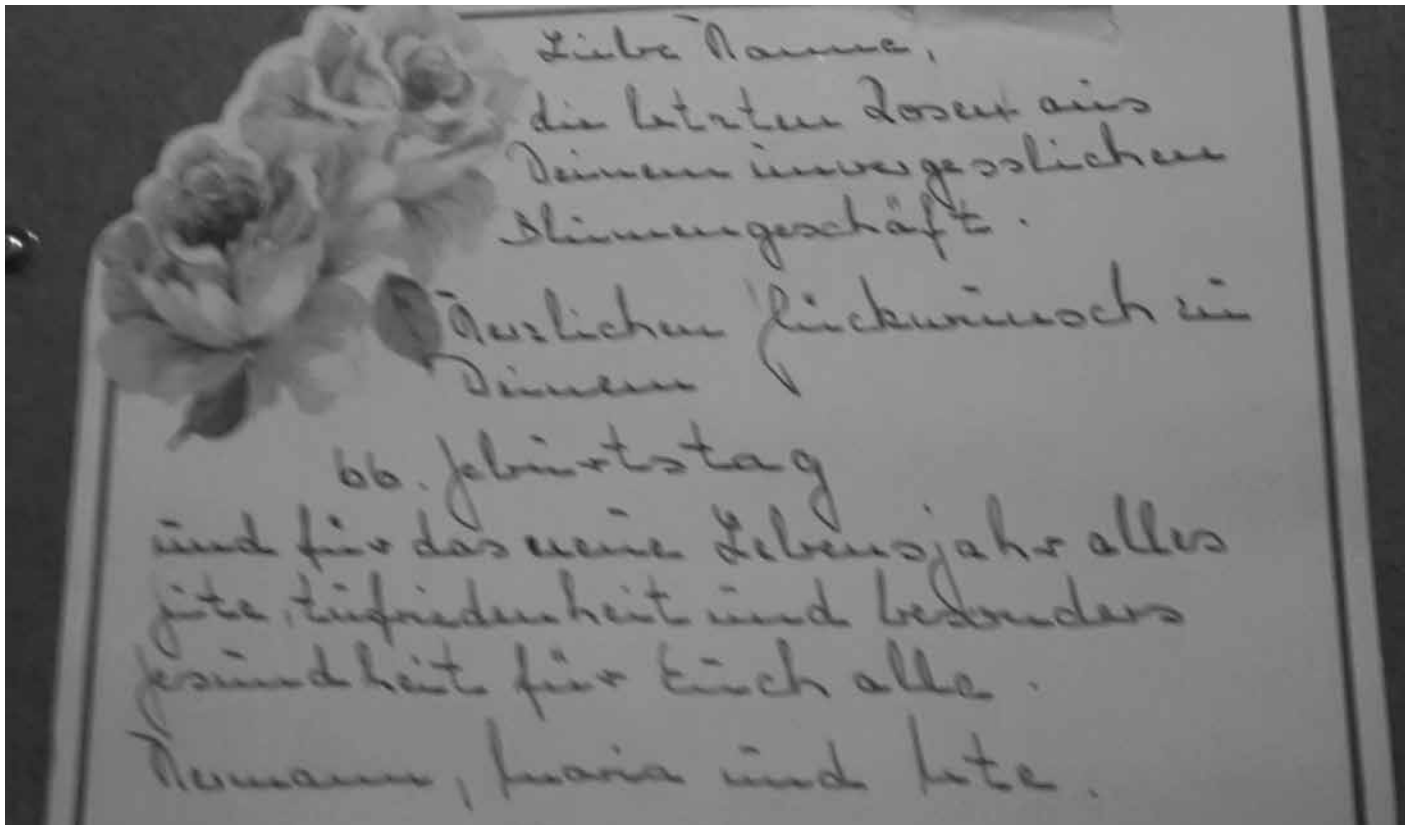 Liebe Hanne,
die letzten Rosen aus
Deinem unvergesslichen
Blumengeschäft.
Herzlichen Glückwunsch zu
Deinem
66. Geburtstag
und für das neue Lebensjahr alles
Gute, Zufriedenheit und besonders
Gesundheit für Euch alle.
Hermann, Maria und